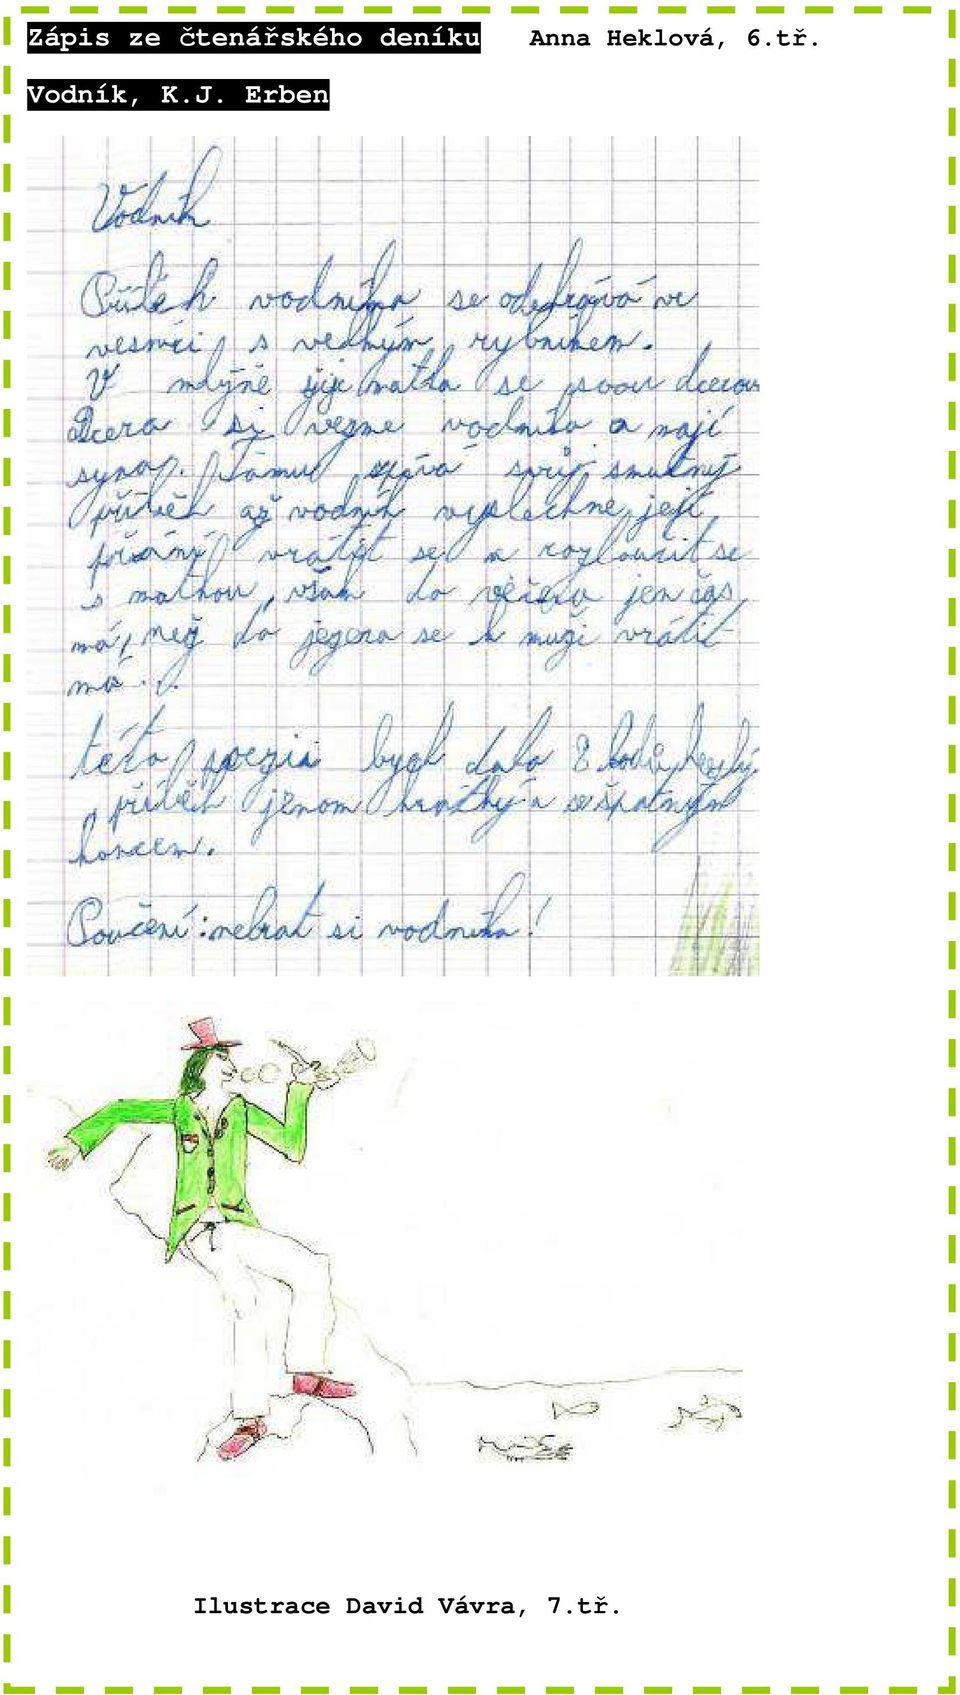 Zápis ze čtenářského deníku Anna Heklová, 6.tř.
Vodník, K.J. Erben
Vodník
Příběh vodníka se odehrává ve
vesnici s velkým rybníkem.
V mlýně žije matka se svou dcerou
Dcera si vezme vodníka a mají
syna. Tomu zpívá svůj smutný
příběh až vodník vyslechne její
přání vrátit se a rozloučit se
s matkou, však do večera jen čas
má, než do jezera se k muži vrátit
má...
této poezii bych dala 8 bodů, hezký
příběh jenom krátký a se špatným
koncem.
Poučení: nebrat si vodníka!
Ilustrace David Vávra, 7.tř.